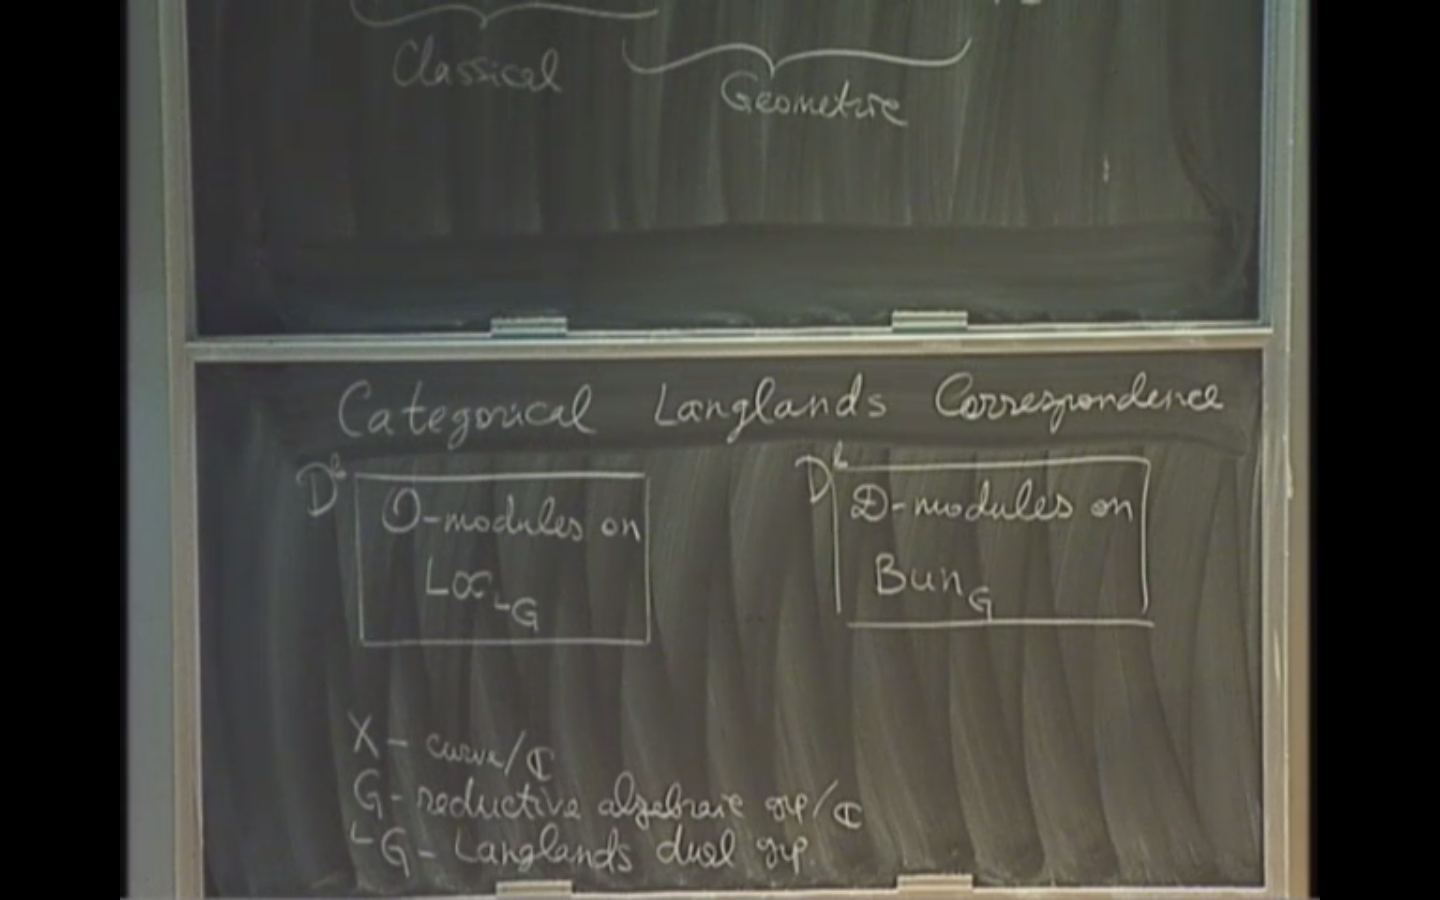 Classical
Geometric
Categorical Langlands Correspondence
D^b O-modules on
Loc_{LG}
D^b D-modules on
Bun_G
X - curve/ℂ
G - reductive algebraic grp/ℂ
^LG - Langlands dual grp.